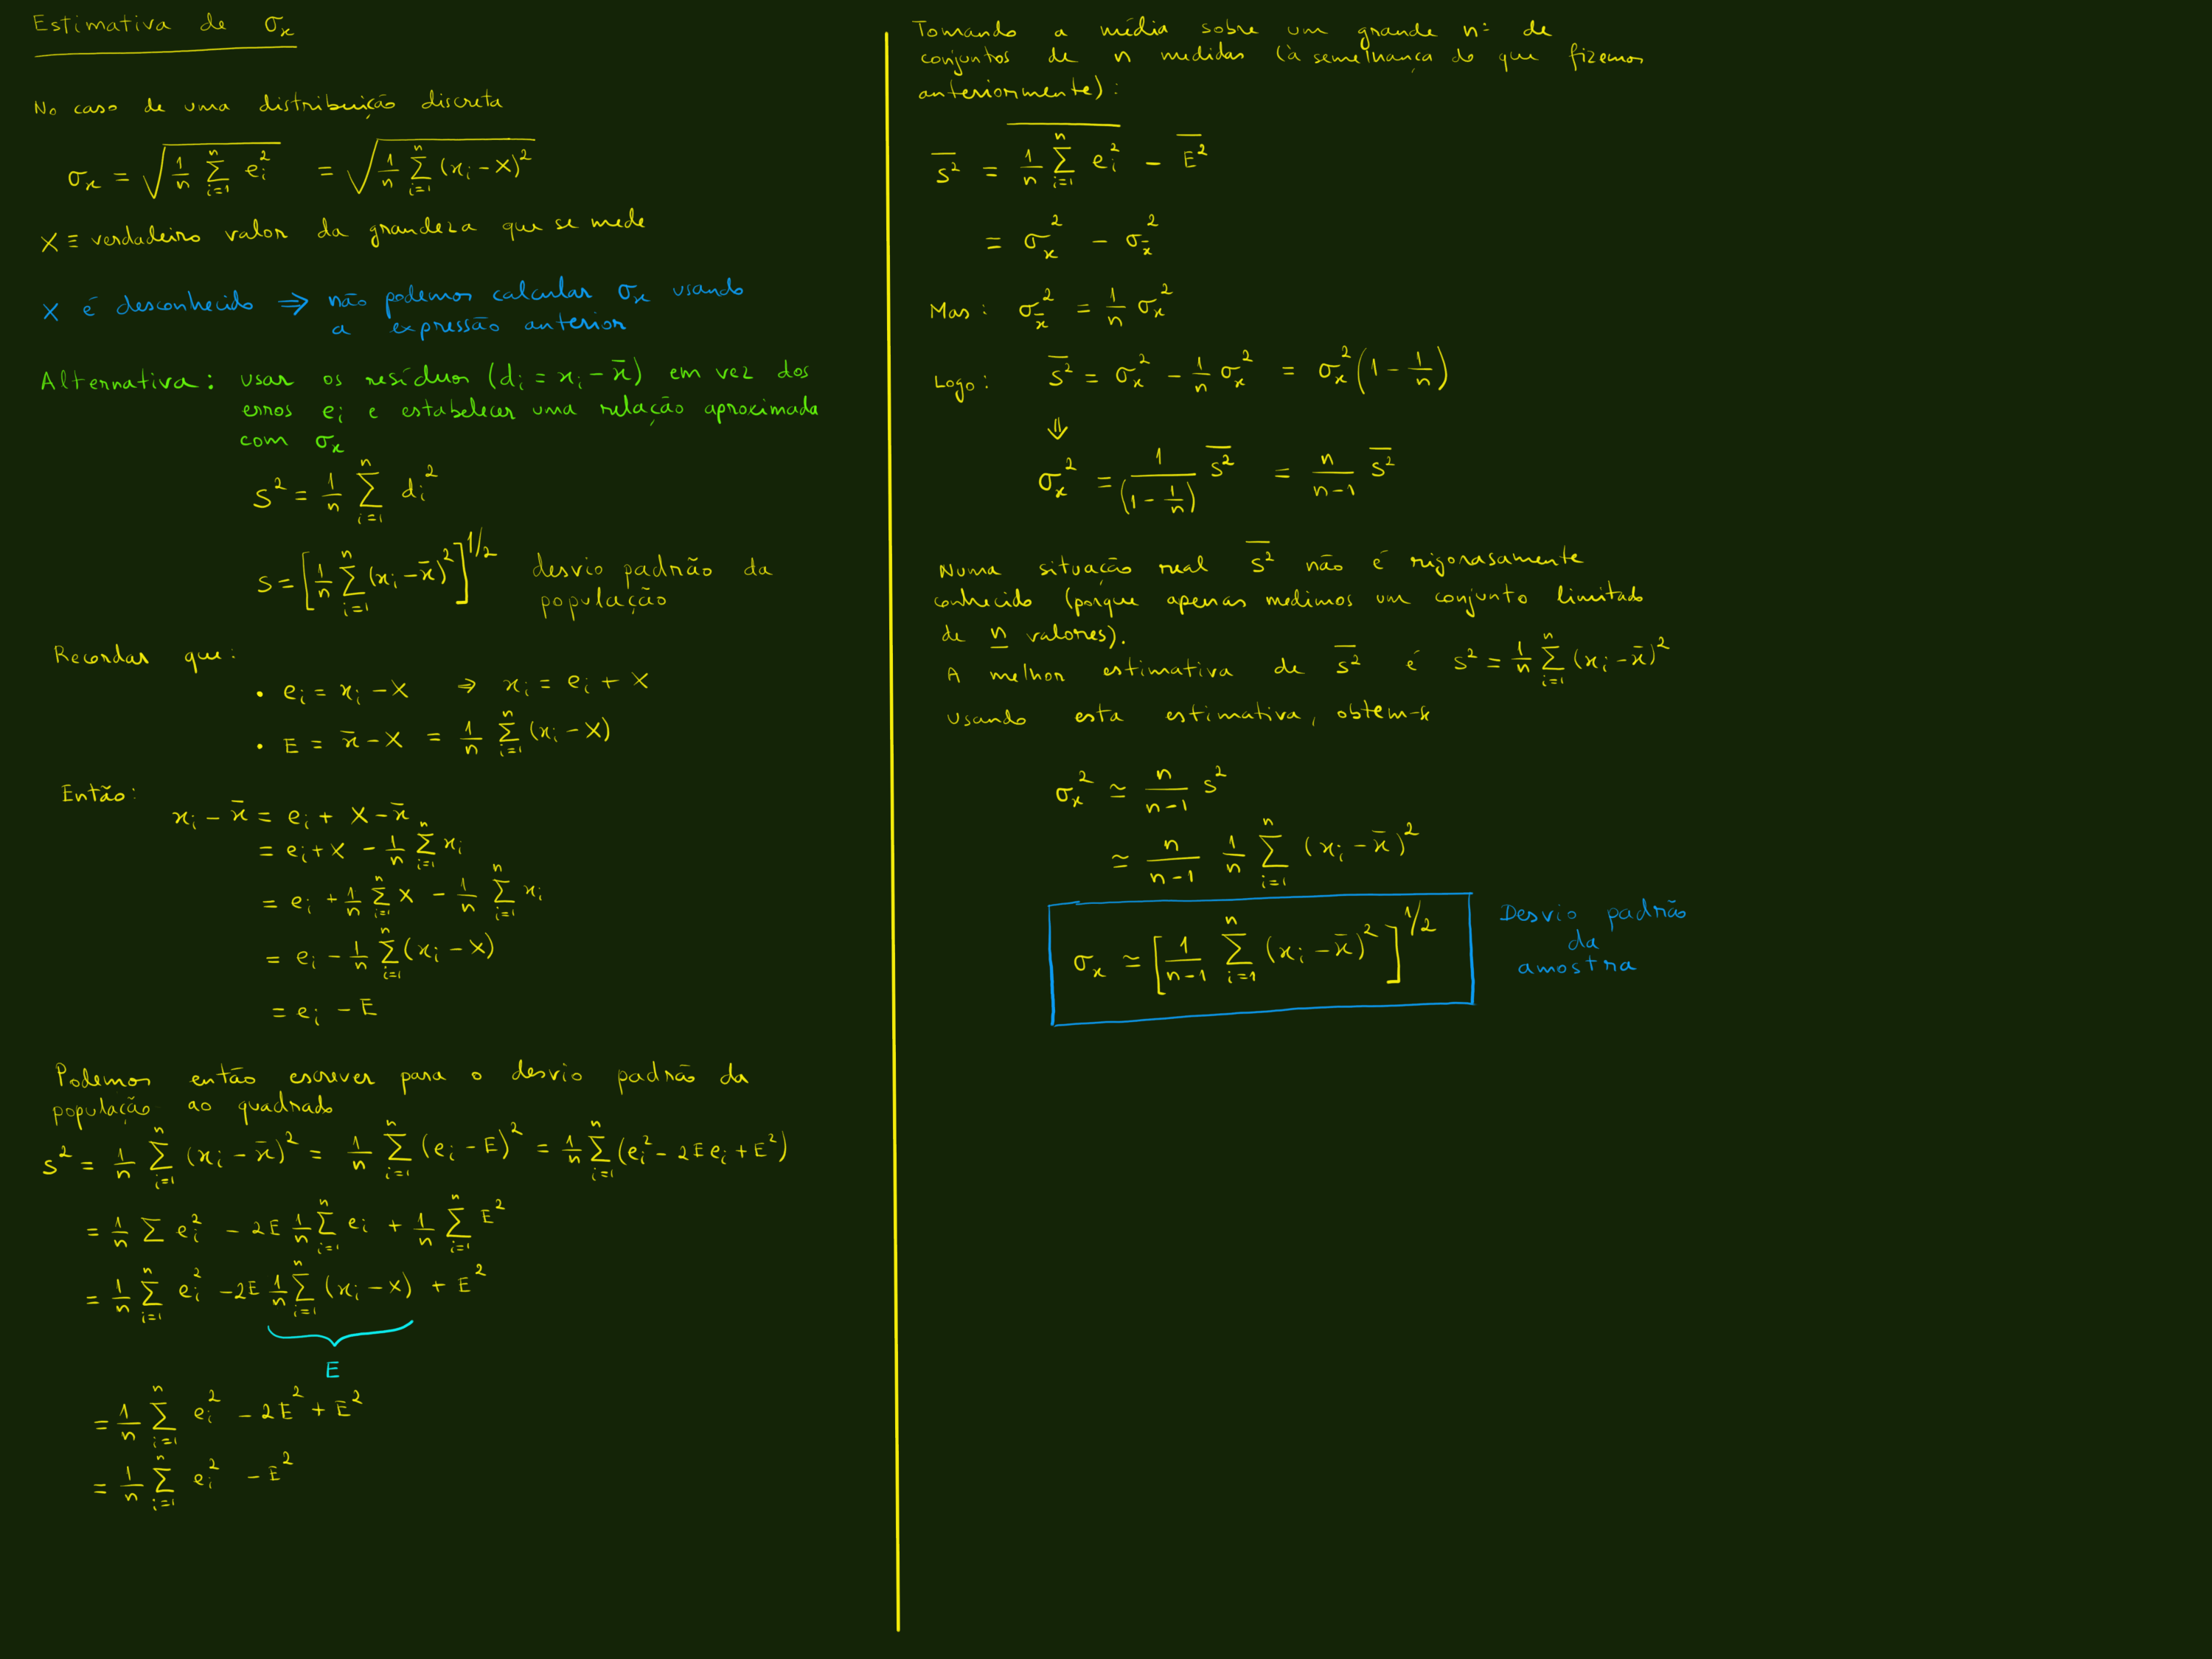 Estimativa de σ_x
No caso de uma distribuição discreta
σ_x = √(1/n Σ_{i=1}^{n} e_i^2) = √(1/n Σ_{i=1}^{n} (x_i - X)^2)
X ≡ verdadeiro valor da grandeza que se mede
X é desconhecido ⇒ não podemos calcular σ_x usando
a expressão anterior
Alternativa: usar os resíduos (d_i = x_i - x̄) em vez dos
erros e_i e estabelecer uma relação aproximada
com σ_x
S^2 = 1/n Σ_{i=1}^{n} d_i^2
S = [1/n Σ_{i=1}^{n} (x_i - x̄)^2]^{1/2} desvio padrão da
população
Recordar que:
• e_i = x_i - X ⇒ x_i = e_i + X
• E = x̄ - X = 1/n Σ_{i=1}^{n} (x_i - X)
Então:
x_i - x̄ = e_i + X - x̄
= e_i + X - 1/n Σ_{i=1}^{n} x_i
= e_i + 1/n Σ_{i=1}^{n} X - 1/n Σ_{i=1}^{n} x_i
= e_i - 1/n Σ_{i=1}^{n} (x_i - X)
= e_i - E
Podemos então escrever para o desvio padrão da
população ao quadrado
s^2 = 1/n Σ_{i=1}^{n} (x_i - x̄)^2 = 1/n Σ_{i=1}^{n} (e_i - E)^2 = 1/n Σ_{i=1}^{n} (e_i^2 - 2E e_i + E^2)
= 1/n Σ e_i^2 - 2E 1/n Σ_{i=1}^{n} e_i + 1/n Σ_{i=1}^{n} E^2
= 1/n Σ_{i=1}^{n} e_i^2 - 2E 1/n Σ_{i=1}^{n} (x_i - X) + E^2
E
= 1/n Σ_{i=1}^{n} e_i^2 - 2E^2 + E^2
= 1/n Σ_{i=1}^{n} e_i^2 - E^2
Tomando a média sobre um grande nº de
conjuntos de n medidas (à semelhança do que fizemos
anteriormente):
\overline{s^2} = \overline{1/n Σ_{i=1}^{n} e_i^2} - \overline{E^2}
= σ_x^2 - σ_x̄^2
Mas: σ_x̄^2 = 1/n σ_x^2
Logo: \overline{s^2} = σ_x^2 - 1/n σ_x^2 = σ_x^2 (1 - 1/n)
⇓
σ_x^2 = 1/(1 - 1/n) \overline{s^2} = n/(n-1) \overline{s^2}
Numa situação real \overline{s^2} não é rigorasamente
conhecido (porque apenas medimos um conjunto limitado
de n valores).
A melhor estimativa de \overline{s^2} é s^2 = 1/n Σ_{i=1}^{n} (x_i - x̄)^2
Usando esta estimativa, obtem-se
σ_x^2 ≃ n/(n-1) s^2
≃ n/(n-1) 1/n Σ_{i=1}^{n} (x_i - x̄)^2
σ_x ≃ [1/(n-1) Σ_{i=1}^{n} (x_i - x̄)^2]^{1/2}
Desvio padrão
da
amostra